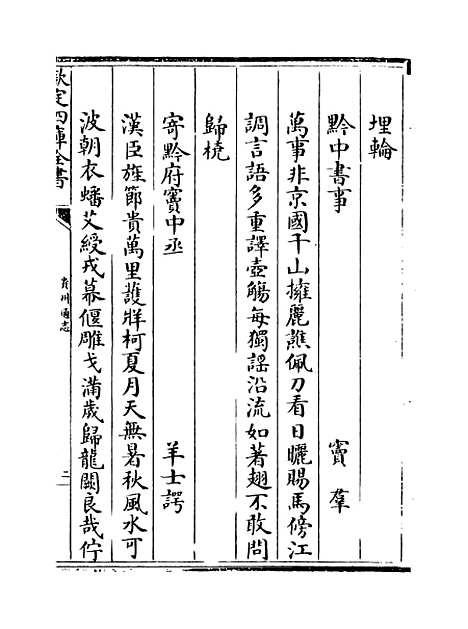 埋輪
黔中書事　竇羣
萬事非京國千山擁麗譙佩刀看日曬賜馬傍江
調言語多重譯壺觴每獨謡沿流如著翅不敢問
歸橈
寄黔府竇中丞　羊士諤
漢臣旌節貴萬里䕶牂柯夏月天無暑秋風水可
波朝衣蟠艾綬戎幕偃雕戈滿歲歸龍闕良哉佇
欽定四庫全書
貴州通志
二